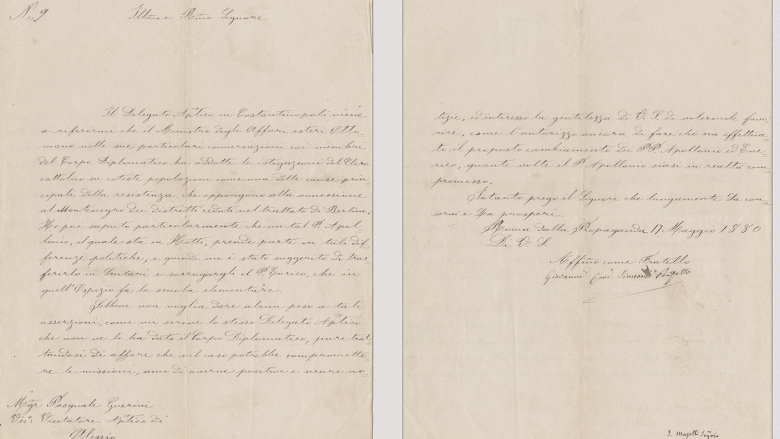 N. 9
Illmo e Rmo Signore
Il Delegato Aptico in Costantinopoli viene
a riferirmi che il Ministro degli Affari esteri Otto
mano nelle sue particolari conversazioni coi membri
del Corpo Diplomatico ha addotto le istigazioni del Clero
cattolico in coteste popolazioni come una delle cause prin
cipali della resistenza che oppongono alla annessione
al Montenegro dei distretti ceduti nel trattato di Berlino.
Ho poi saputo particolarmente che un tal P. Apol
lonio, il quale sta in Hotti, prende parte in tali dif
ferenze politiche, e quindi mi è stato suggerito di tras
ferirlo in Scutari e surrogargli il P. Enrico, che in
quell'Ospizio fa la scuola elementare.
Sebbene non voglia dare alcun peso a tale
asserzioni, come mi scrive lo stesso Delegato Aptico
che non ve lo ha dato il Corpo Diplomatico, pure trat
tandosi di affare che nel caso potrebbe compromette
re le missioni, amo di averne positive e sicure no
Mgr Pasquale Guerini
Visitatore Aptico di
Alessio
tizie, ed interesso la gentilezza di V. S. di volermele favo
rire, come l'autorizzo ancora di fare che sia effettua
to il proposto cambiamento dei PP. Apollonio ed En
rico, quante volte il P. Apollonio siasi in realtà com
promesso.
Intanto prego il Signore che lungamente La con
servi e La prosperi.
Roma dalla Propaganda 17 Maggio 1880
Di V. S.
Affmo come Fratello
Giovanni Card. Simeoni Prefetto